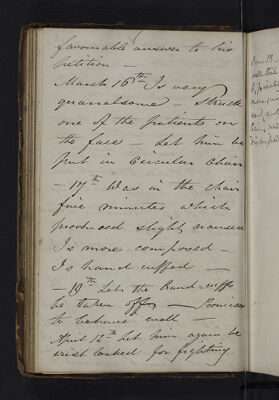 favourable answer to his
petition —
March 16th Is very
quarrelsome — Struck
one of the patients on
the face — Let him be
put in Circular Chair
— 17th Was in the chair
five minutes which
produced slight nausea
Is more composed
Is hand cuffed —
— 19th Let the hand cuffs
be taken off — Promises
to behave well
April 12th Let him again be
wrist locked for fighting